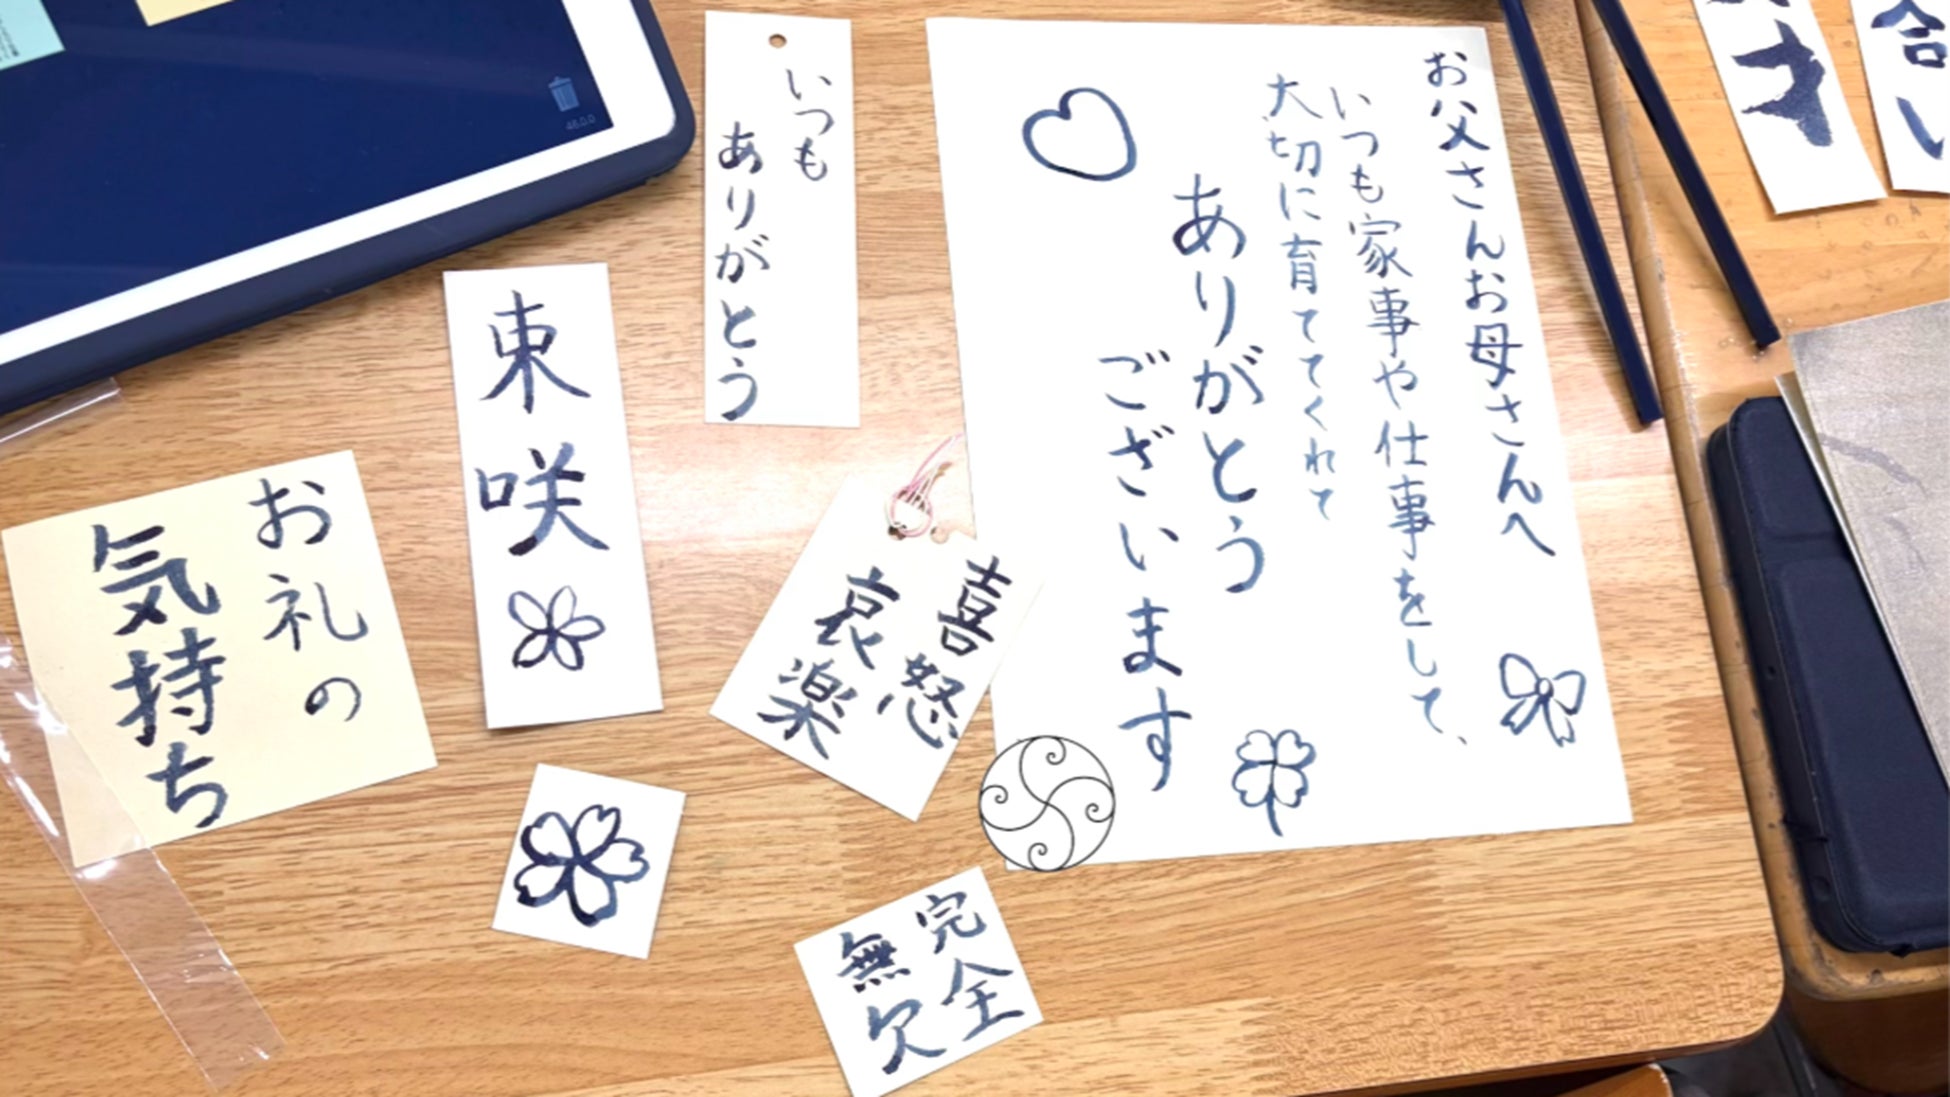 お父さんお母さんへ
いつも家事や仕事をして、
大切に育ててくれて
ありがとう
ございます
いつも
ありがとう
束
咲
喜怒
哀楽
お礼の
気持ち
完全
無欠
合い
才
46.0.0